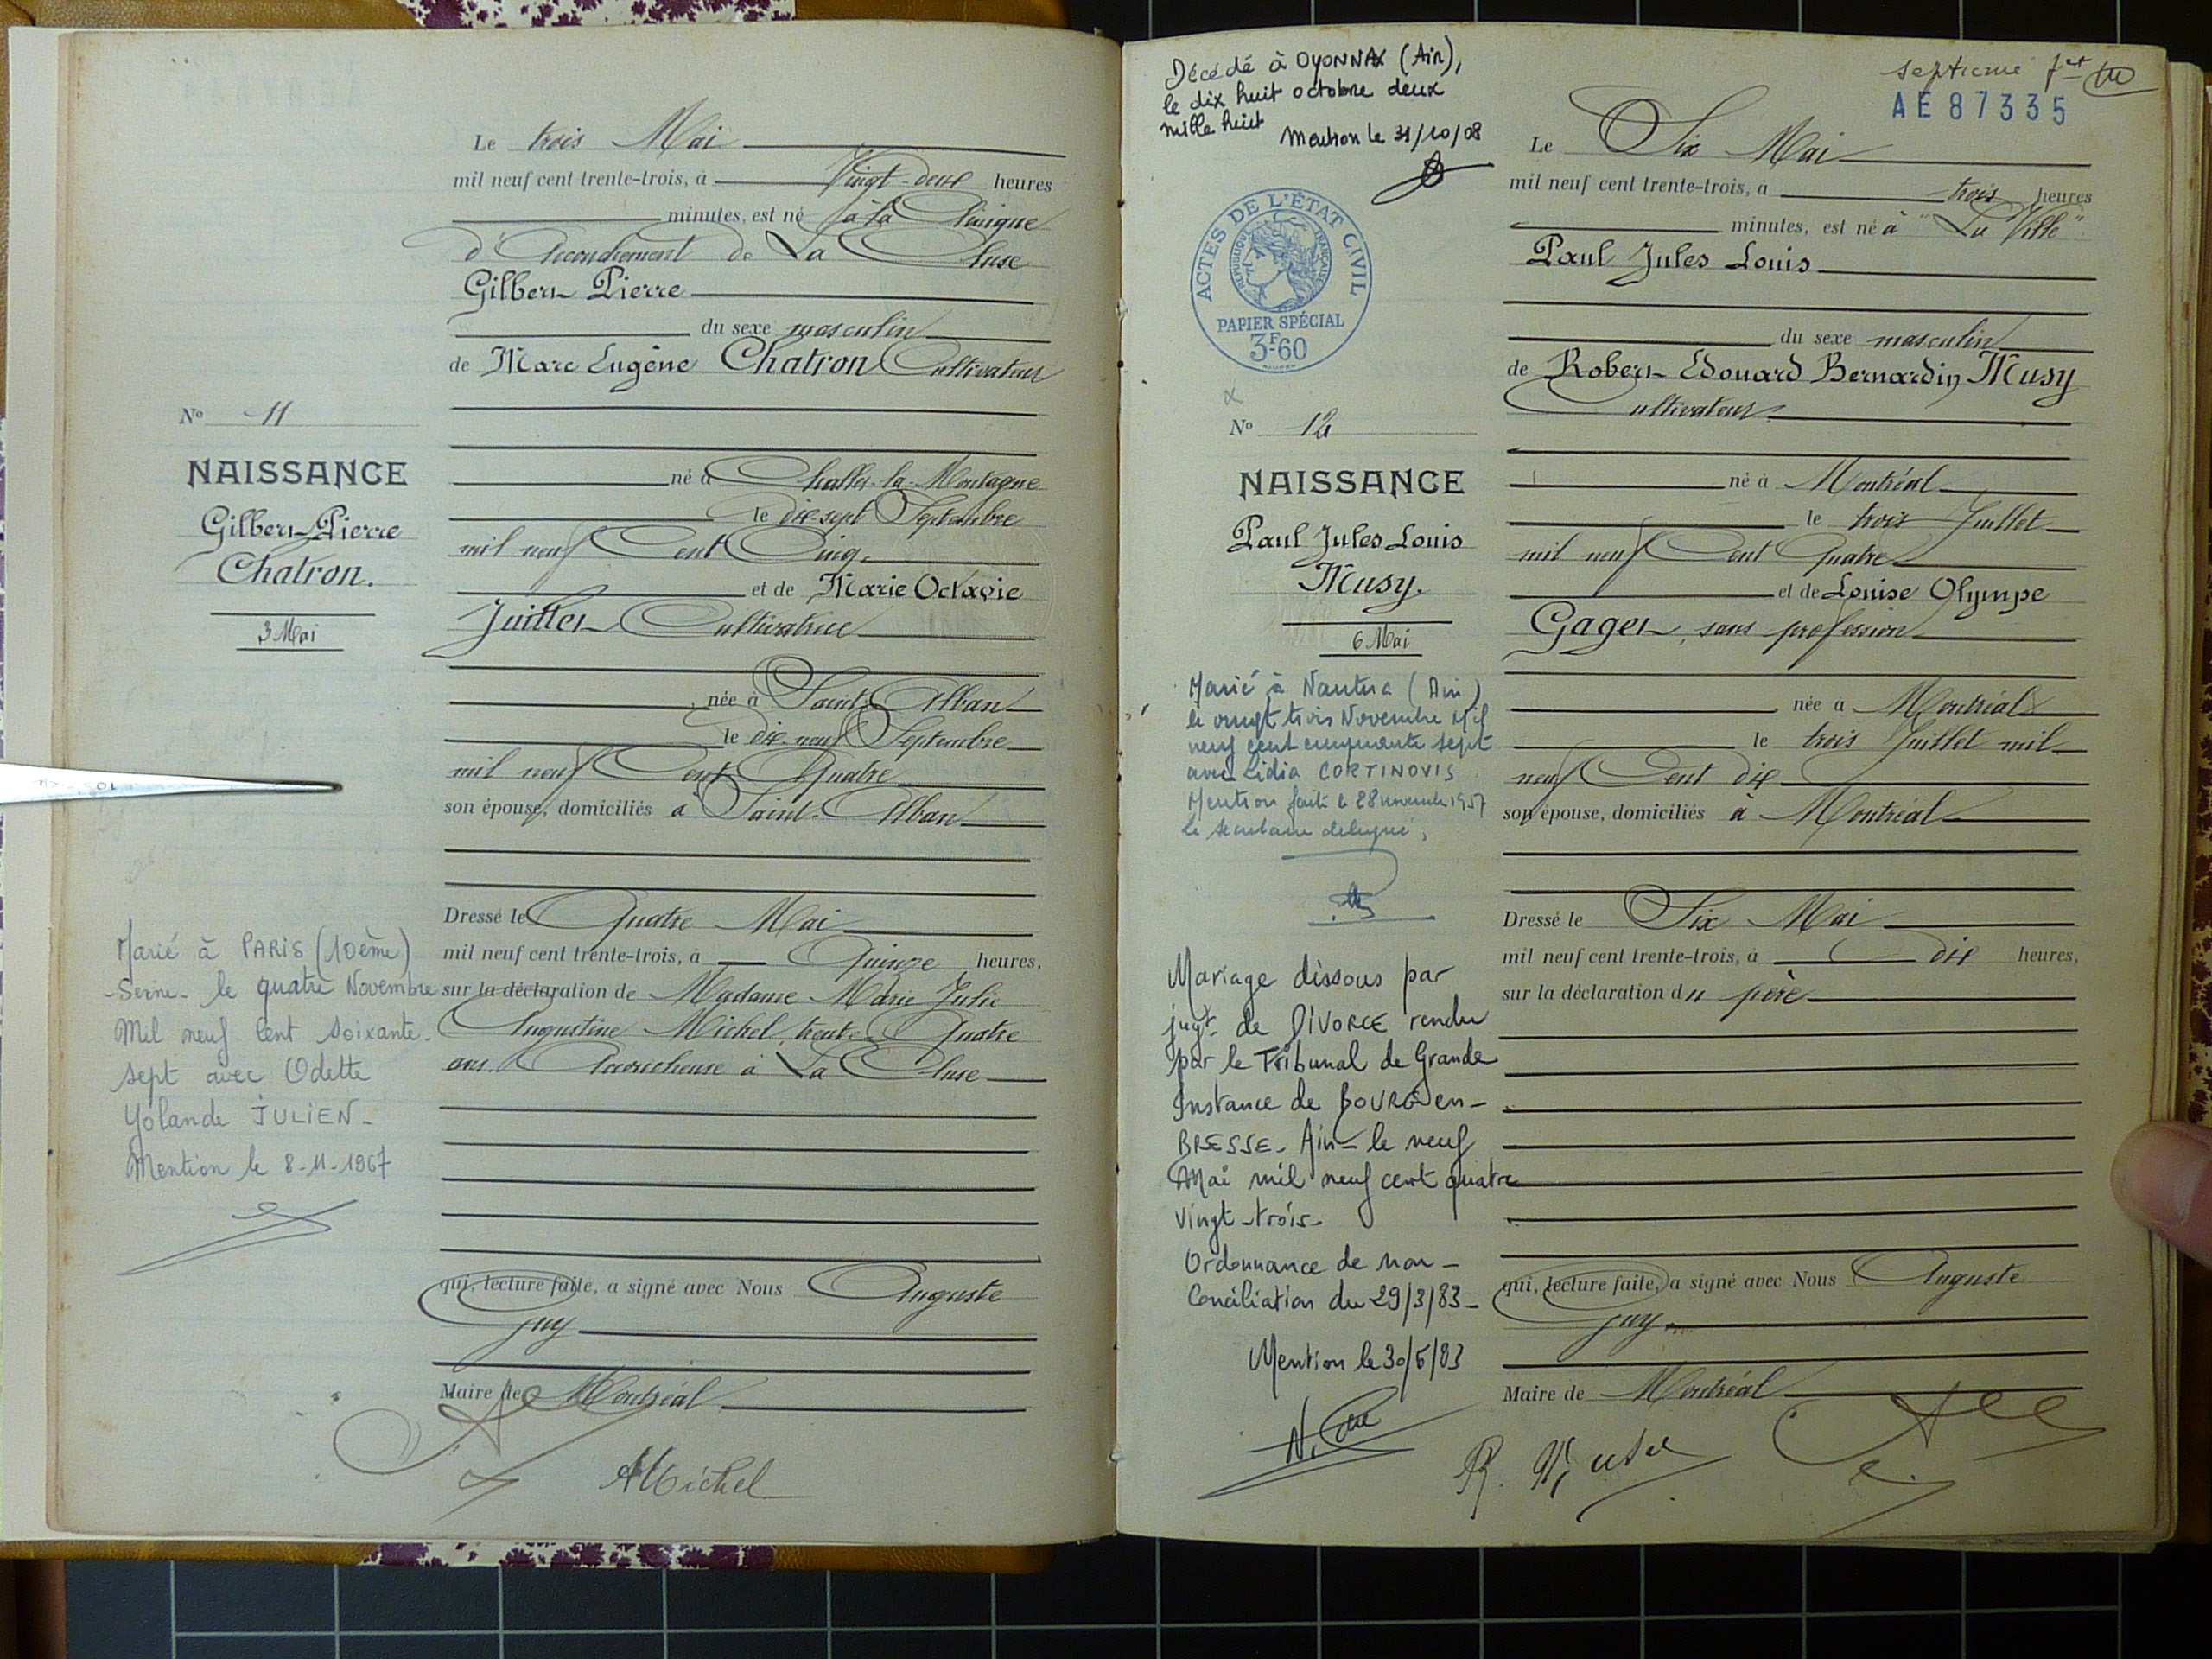 Le trois Mai
mil neuf cent trente-trois, à Vingt-deux heures
minutes, est né à la Clinique
d'Accouchement de La Cluse
Gilbert Pierre
du sexe masculin
de Marc Eugène Chatron Cultivateur
né à Challes-la-Montagne
le dix-sept Septembre
mil neuf Cent Cinq
et de Marie Octavie
Juillet Cultivatrice
née à Saint-Alban
le dix-neuf Septembre
mil neuf Cent Quatre
son épouse, domiciliés à Saint-Alban
Dressé le Quatre Mai
mil neuf cent trente-trois, à Quinze heures,
sur la déclaration de Madame Marie Julie
Augustine Michel, trente-Quatre
ans, Accoucheuse à La Cluse
qui, lecture faite, a signé avec Nous Auguste
Guy
Maire de Montréal
AMichel
No 11
NAISSANCE
Gilbert Pierre
Chatron.
3 Mai
Marié à PARIS (10ème)
-Seine- le quatre Novembre
Mil neuf cent soixante-
sept avec Odette
Yolande JULIEN-
Mention le 8-11-1967
Décédé à OYONNAX (Ain),
le dix huit octobre deux
mille huit
Mention le 31/10/08
septième
AE 87335
ACTES DE L'ÉTAT CIVIL
RÉPUBLIQUE FRANÇAISE
PAPIER SPÉCIAL
3F60
No 12
NAISSANCE
Paul Jules Louis
Musy.
6 Mai
Marié à Nantua (Ain)
le vingt trois Novembre Mil
neuf cent cinquante sept
avec Lidia CORTINOVIS
Mention faite le 28 novembre 1957
le secrétaire délégué,
Mariage dissous par
jugt de DIVORCE rendu
par le Tribunal de Grande
Instance de BOURG en-
BRESSE- Ain- le neuf
Mai mil neuf cent quatre
vingt-trois-
Ordonnance de non-
Conciliation du 29/3/83-
Mention le 30/5/83
Le Six Mai
mil neuf cent trente-trois, à trois heures
minutes, est né à "La Ville"
Paul Jules Louis
du sexe masculin
de Robert Edouard Bernardin Musy
Cultivateur
né à Montréal
le trois Juillet
mil neuf Cent Quatre
et de Louise Olympe
Gaget, sans profession
née à Montréal
le trois Juillet mil
neuf Cent dix
son épouse, domiciliés à Montréal
Dressé le Six Mai
mil neuf cent trente-trois, à dix heures,
sur la déclaration du père
qui, lecture faite, a signé avec Nous Auguste
Guy
Maire de Montréal
R. Musy